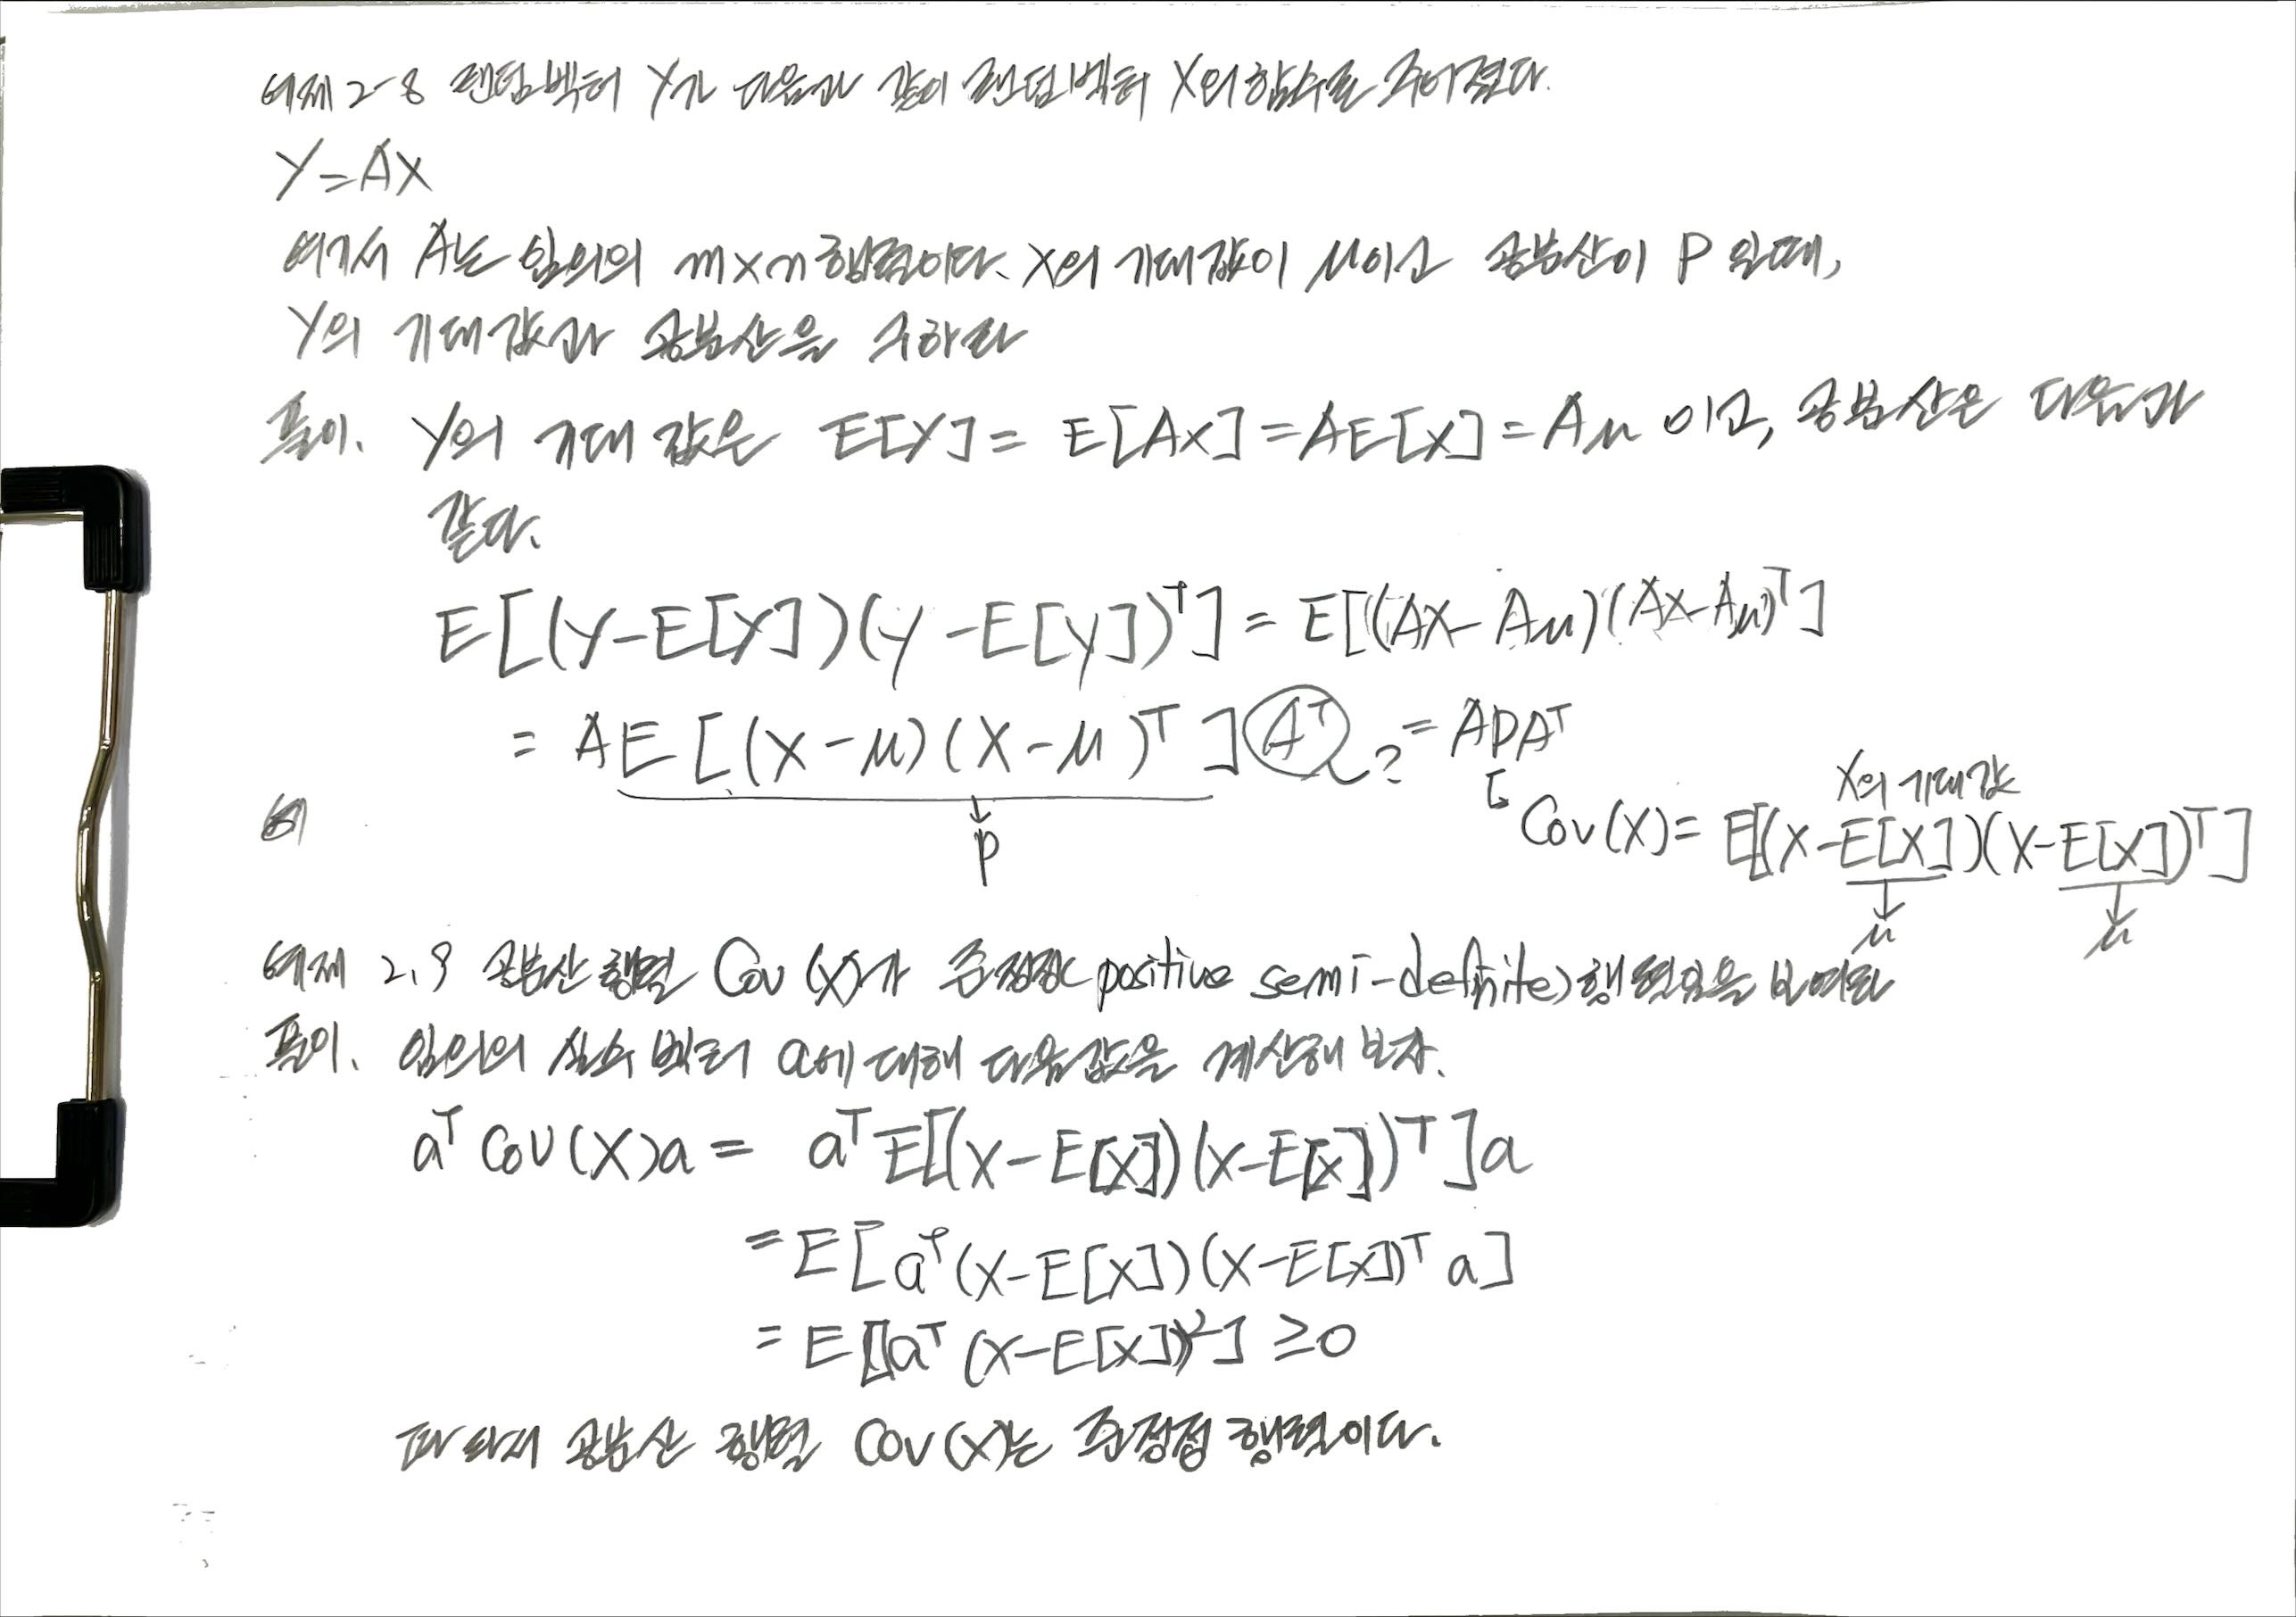 예제 2-8 랜덤벡터 Y가 다음과 같이 랜덤벡터 X의 함수로 주어졌다.
Y=AX
여기서 A는 임의의 m×n 행렬이다. X의 기대값이 μ이고 공분산이 P 일때,
Y의 기대값과 공분산을 구하라
풀이. Y의 기대값은 E[Y] = E[AX] = AE[X] = Aμ 이고, 공분산은 다음과
같다.
E[(Y-E[Y])(Y-E[Y])ᵀ] = E[(AX-Aμ)(AX-Aμ)ᵀ]
= AE[(X-μ)(X-μ)ᵀ]Aᵀ ? = APAᵀ
P
X의 기대값
Cov(X) = E[(X-E[X])(X-E[X])ᵀ]
μ μ
예제 2.9 공분산 행렬 Cov(X)가 준정정(positive semi-definite)행렬임을 보여라
풀이. 임의의 실수 벡터 a에 대해 다음값을 계산해 보자.
aᵀCov(X)a = aᵀE[(X-E[X])(X-E[X])ᵀ]a
= E[aᵀ(X-E[X])(X-E[X])ᵀa]
= E[(aᵀ(X-E[X]))²] ≥0
따라서 공분산 행렬 Cov(X)는 준정정 행렬이다.